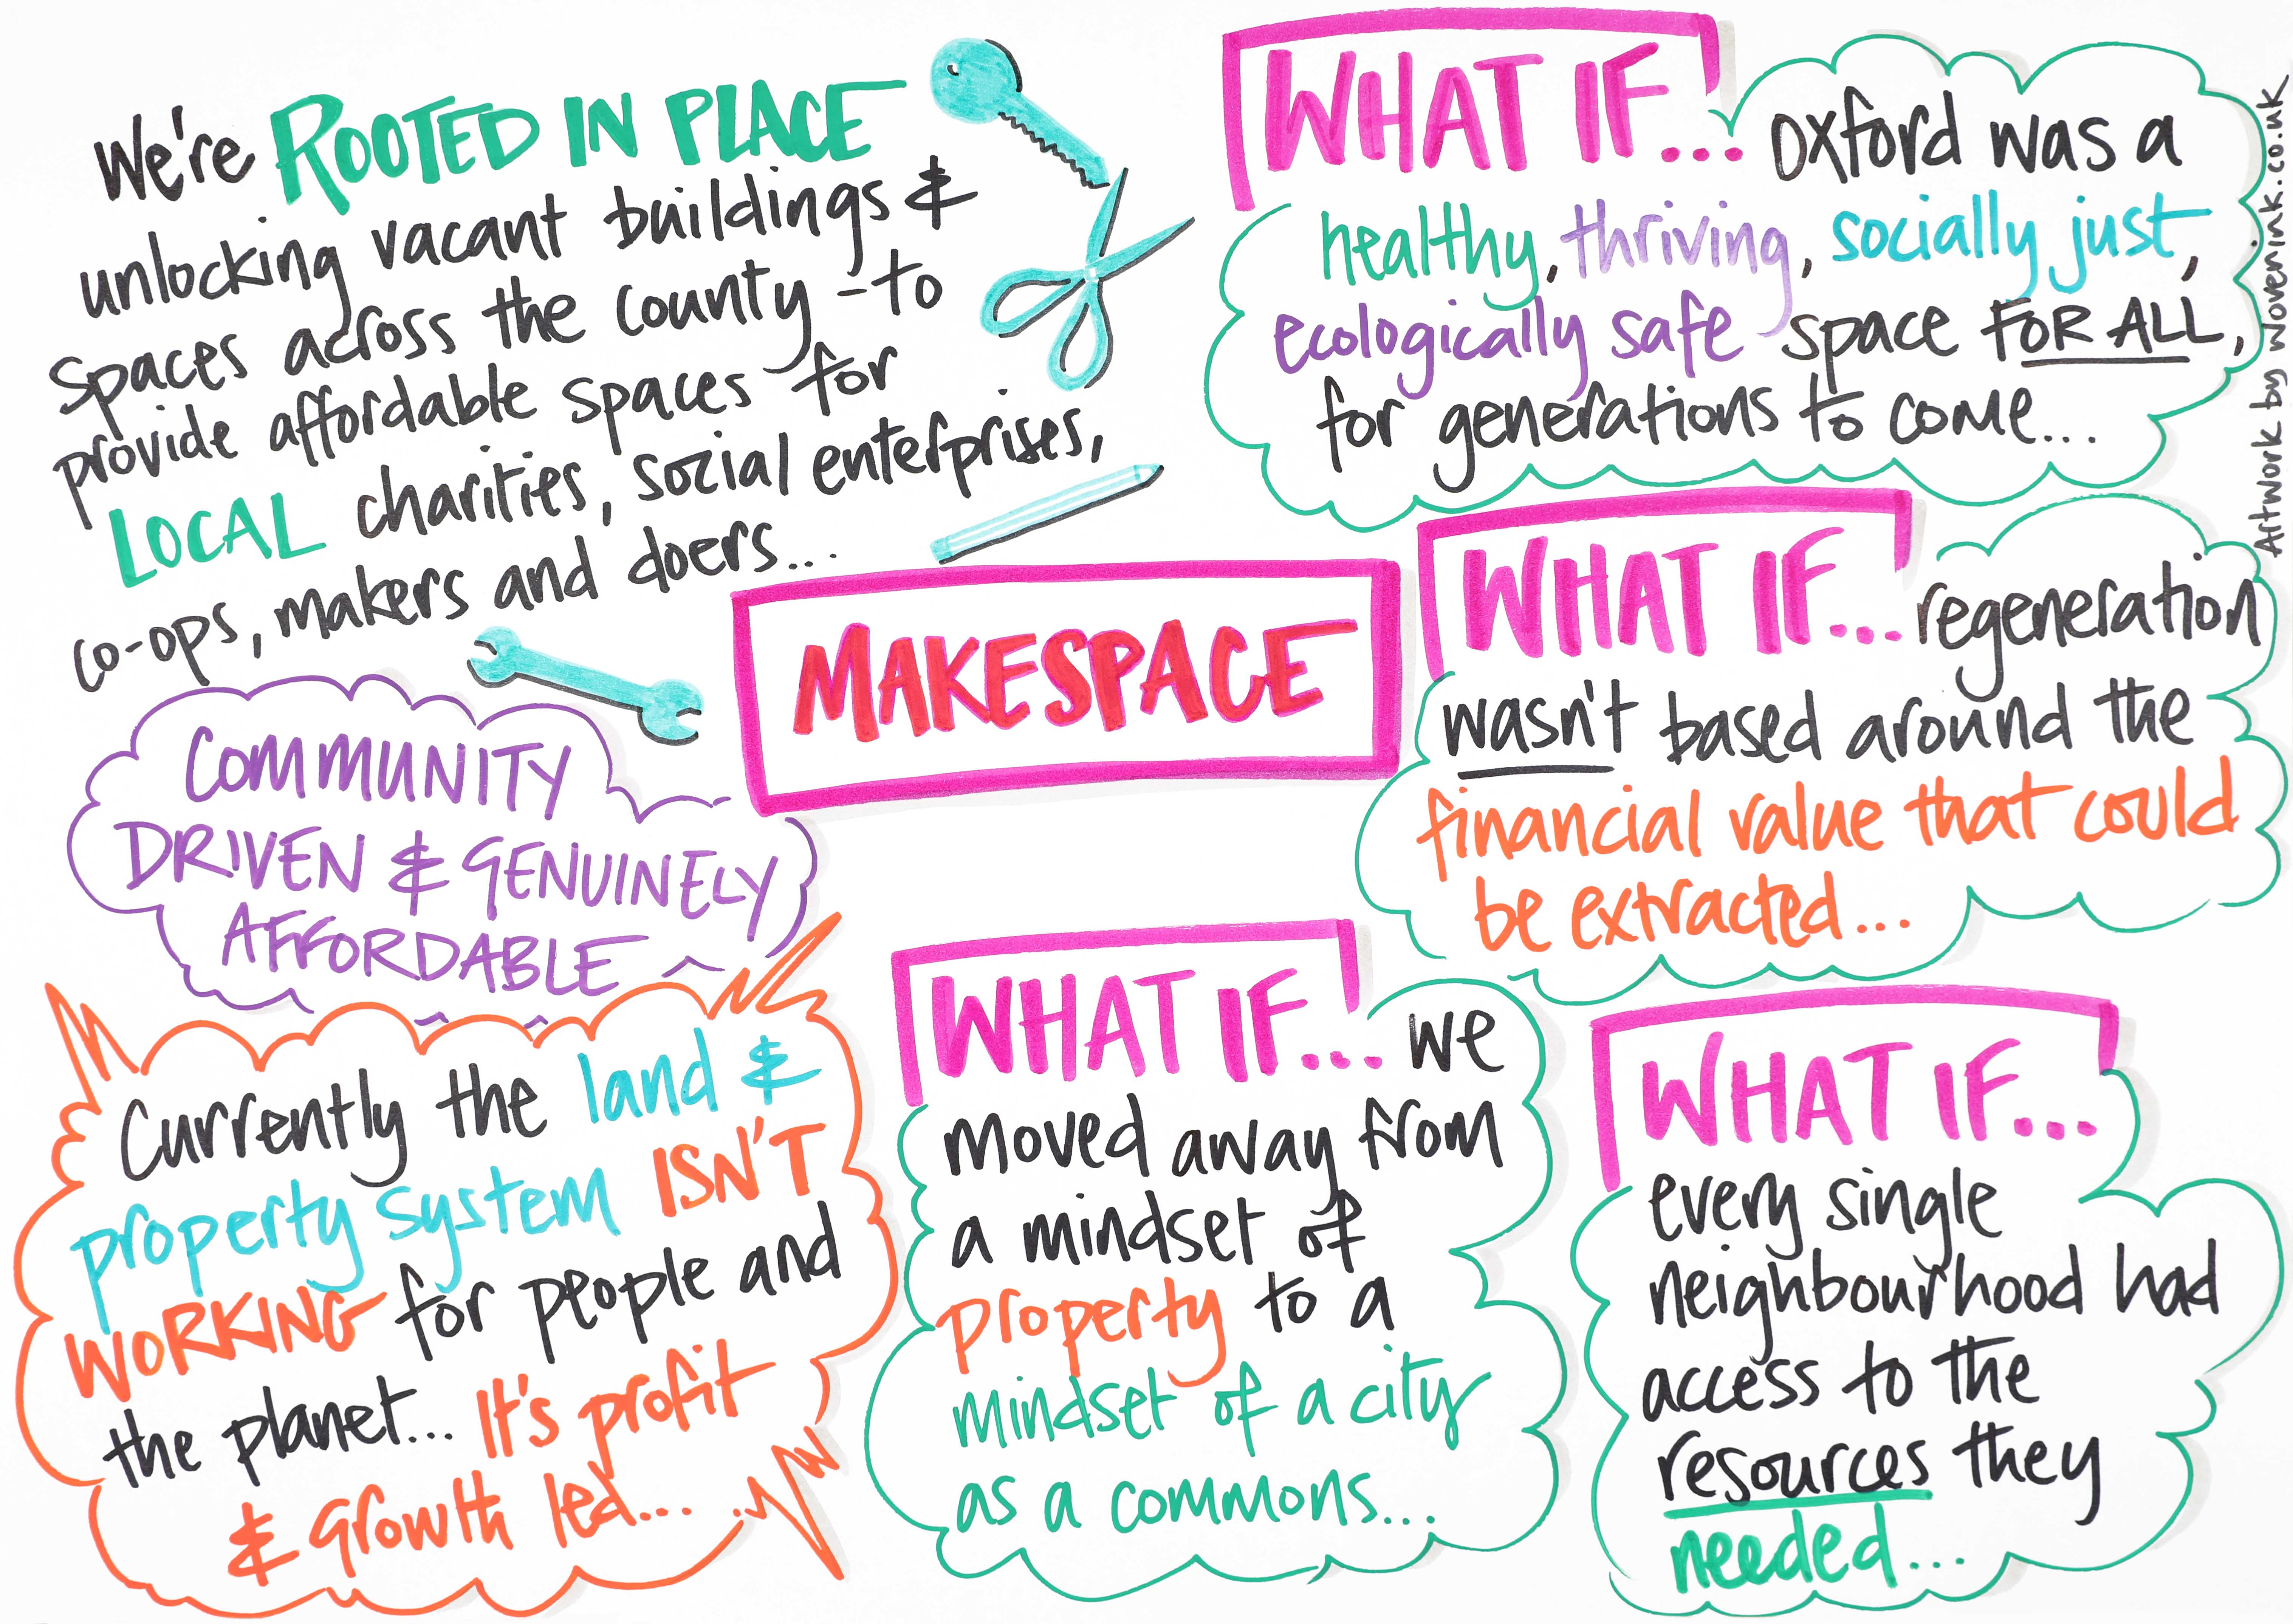 We're ROOTED IN PLACE
unlocking vacant buildings &
spaces across the county - to
provide affordable spaces for
LOCAL charities, social enterprises,
co-ops, makers and doers...
MAKESPACE
COMMUNITY
DRIVEN & GENUINELY
AFFORDABLE
Currently the land &
property system ISN'T
WORKING for people and
the planet... It's profit
& growth led...
WHAT IF... Oxford was a
healthy, thriving, socially just,
ecologically safe space FOR ALL,
for generations to come...
WHAT IF... regeneration
wasn't based around the
financial value that could
be extracted...
WHAT IF... we
moved away from
a mindset of
property to a
mindset of a city
as a commons...
WHAT IF...
every single
neighbourhood had
access to the
resources they
needed...
Artwork by wovenink.co.uk